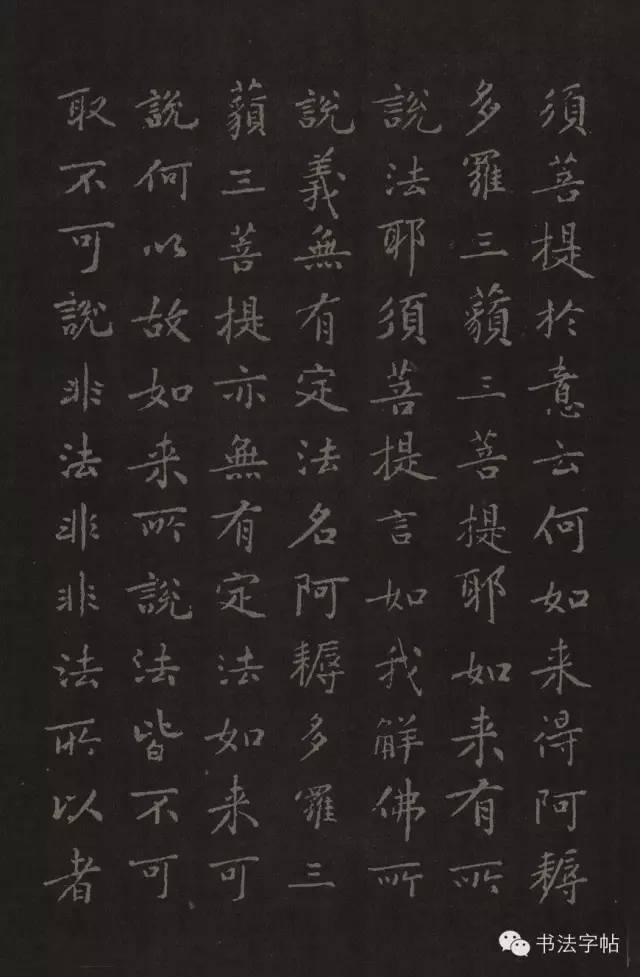 須菩提於意云何如来得阿耨
多羅三藐三菩提耶如来有所
說法耶須菩提言如我解佛所
說義無有定法名阿耨多羅三
藐三菩提亦無有定法如来可
說何以故如来所說法皆不可
取不可說非法非非法所以者
书法字帖